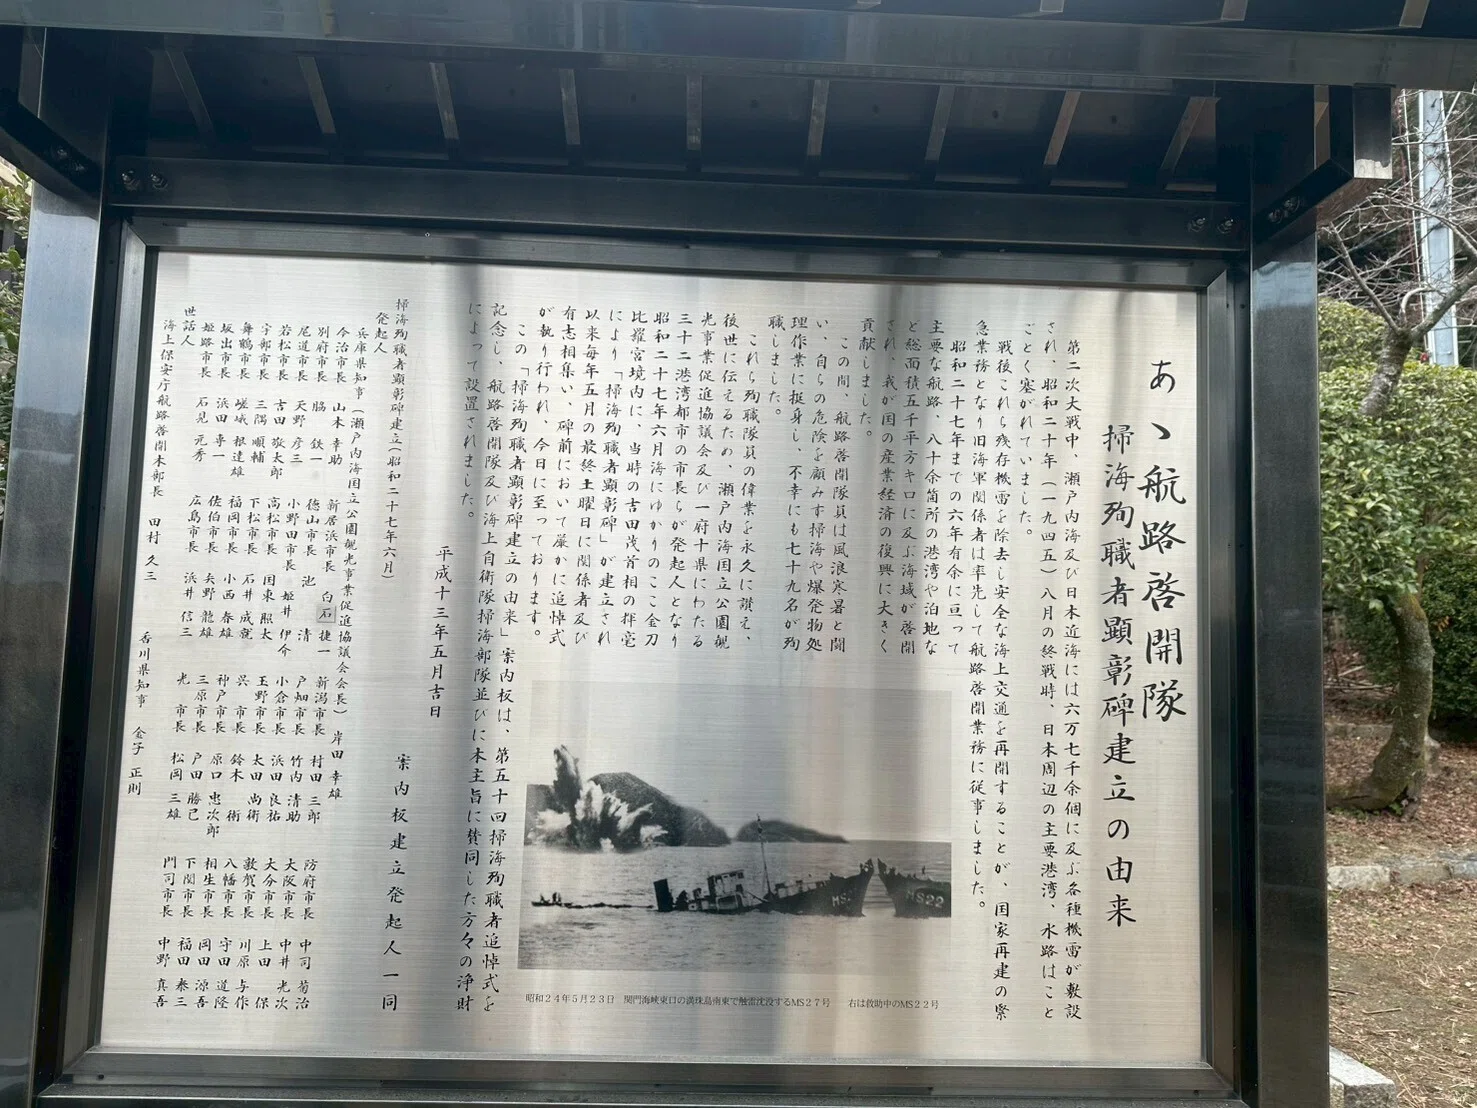 あゝ航路啓開隊
掃海殉職者顕彰碑建立の由来
第二次大戦中、瀬戸内海及び日本近海には六万七千余個に及ぶ各種機雷が敷設
され、昭和二十年(一九四五)八月の終戦時、日本周辺の主要港湾、水路はこと
ごとく塞がれていました。
戦後これら残存機雷を除去し安全な海上交通を再開することが、国家再建の緊
急業務となり旧海軍関係者は率先して航路啓開業務に従事しました。
昭和二十七年までの六年有余に亘って
主要な航路 八十余箇所の港湾や泊地な
ど総面積五千平方キロに及ぶ海域が啓開
され、我が国の産業経済の復興に大きく
貢献しました。
この間、航路啓開隊員は風浪寒暑と闘
い、自らの危険を顧みず掃海や爆発物処
理作業に挺身し、不幸にも七十九名が殉
職しました。
これら殉職隊員の偉業を永久に讃え、
後世に伝えるため、瀬戸内海国立公園観
光事業促進協議会及び一府十県にわたる
三十二港湾都市の市長らが発起人となり
昭和二十七年六月海にゆかりのここ金刀
比羅宮境内に、当時の吉田茂首相の揮毫
により「掃海殉職者顕彰碑」が建立され
以来毎年五月の最終土曜日に関係者及び
有志相集い、碑前において厳かに追悼式
が執り行われ、今日に至っております。
この「掃海殉職者顕彰碑建立の由来」案内板は、第五十回掃海殉職者追悼式を
記念し、航路啓開隊及び海上自衛隊掃海部隊並びに本主旨に賛同した方々の浄財
によって設置されました。
平成十三年五月吉日
案内板建立発起人一同
昭和24年5月23日 関門海峡東口の満珠島南東で触雷沈没するMS27号 右は救助中のMS22号
MS22
掃海殉職者顕彰碑建立(昭和二十七年六月)
発起人
兵庫県知事(瀬戸内海国立公園観光事業促進協議会会長) 岸田 幸雄
今治市長 山本 幸助 新居浜市長 白石 捷一 新潟市長 村田 三郎 防府市長 中司 菊治
別府市長 脇 鉄一 徳山市長 池 清 戸畑市長 竹内 清助 大阪市長 中井 光次
尾道市長 天野 彦三 小野田市長 姫井 伊介 小倉市長 浜田 良祐 大分市長 上田 保
若松市長 吉田 敬太郎 高松市長 国東 照太 玉野市長 太田 尚衛 敦賀市長 川原 与作
宇部市長 三隅 順輔 下松市長 石井 成就 呉市長 鈴木 術 八幡市長 守田 道隆
舞鶴市長 嵯峨 根達雄 福岡市長 小西 春雄 神戸市長 原口 忠次郎 相生市長 岡田 源吾
坂出市長 浜田 専一 佐伯市長 矢野 龍雄 三原市長 戸田 勝己 下関市長 福田 泰三
姫路市長 石見 元秀 広島市長 浜井 信三 光市長 松岡 三雄 門司市長 中野 真吾
世話人
海上保安庁航路啓開本部長 田村 久三 香川県知事 金子 正則